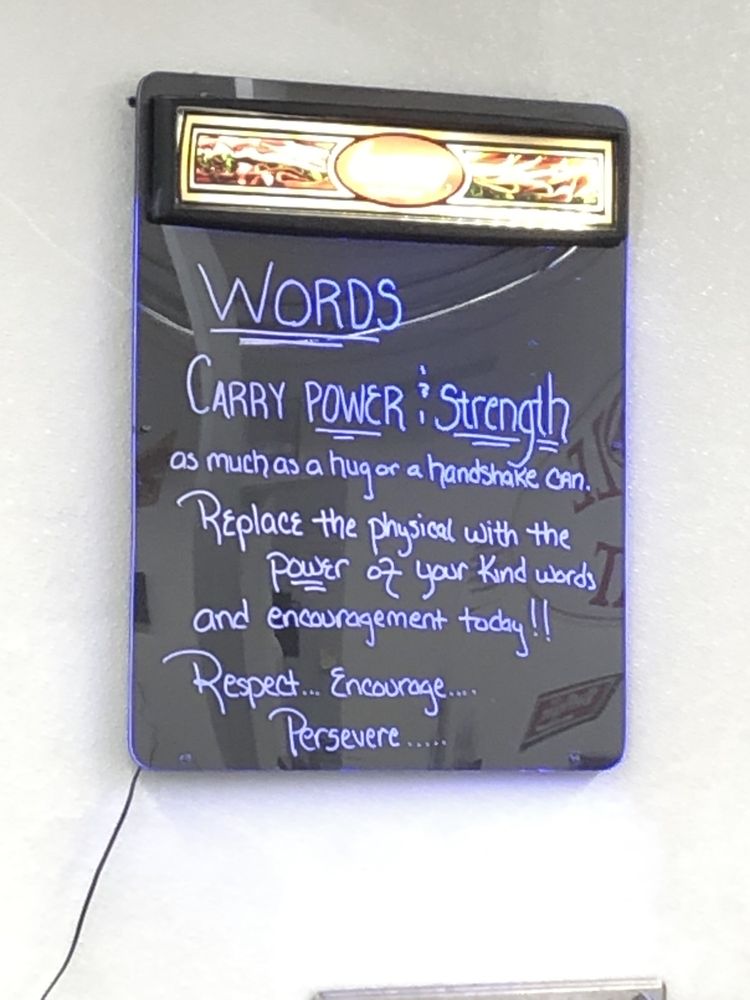 WORDS
CARRY POWER & Strength
as much as a hug or a handshake can.
Replace the physical with the
power of your kind words
and encouragement today!!
Respect... Encourage....
Persevere.....